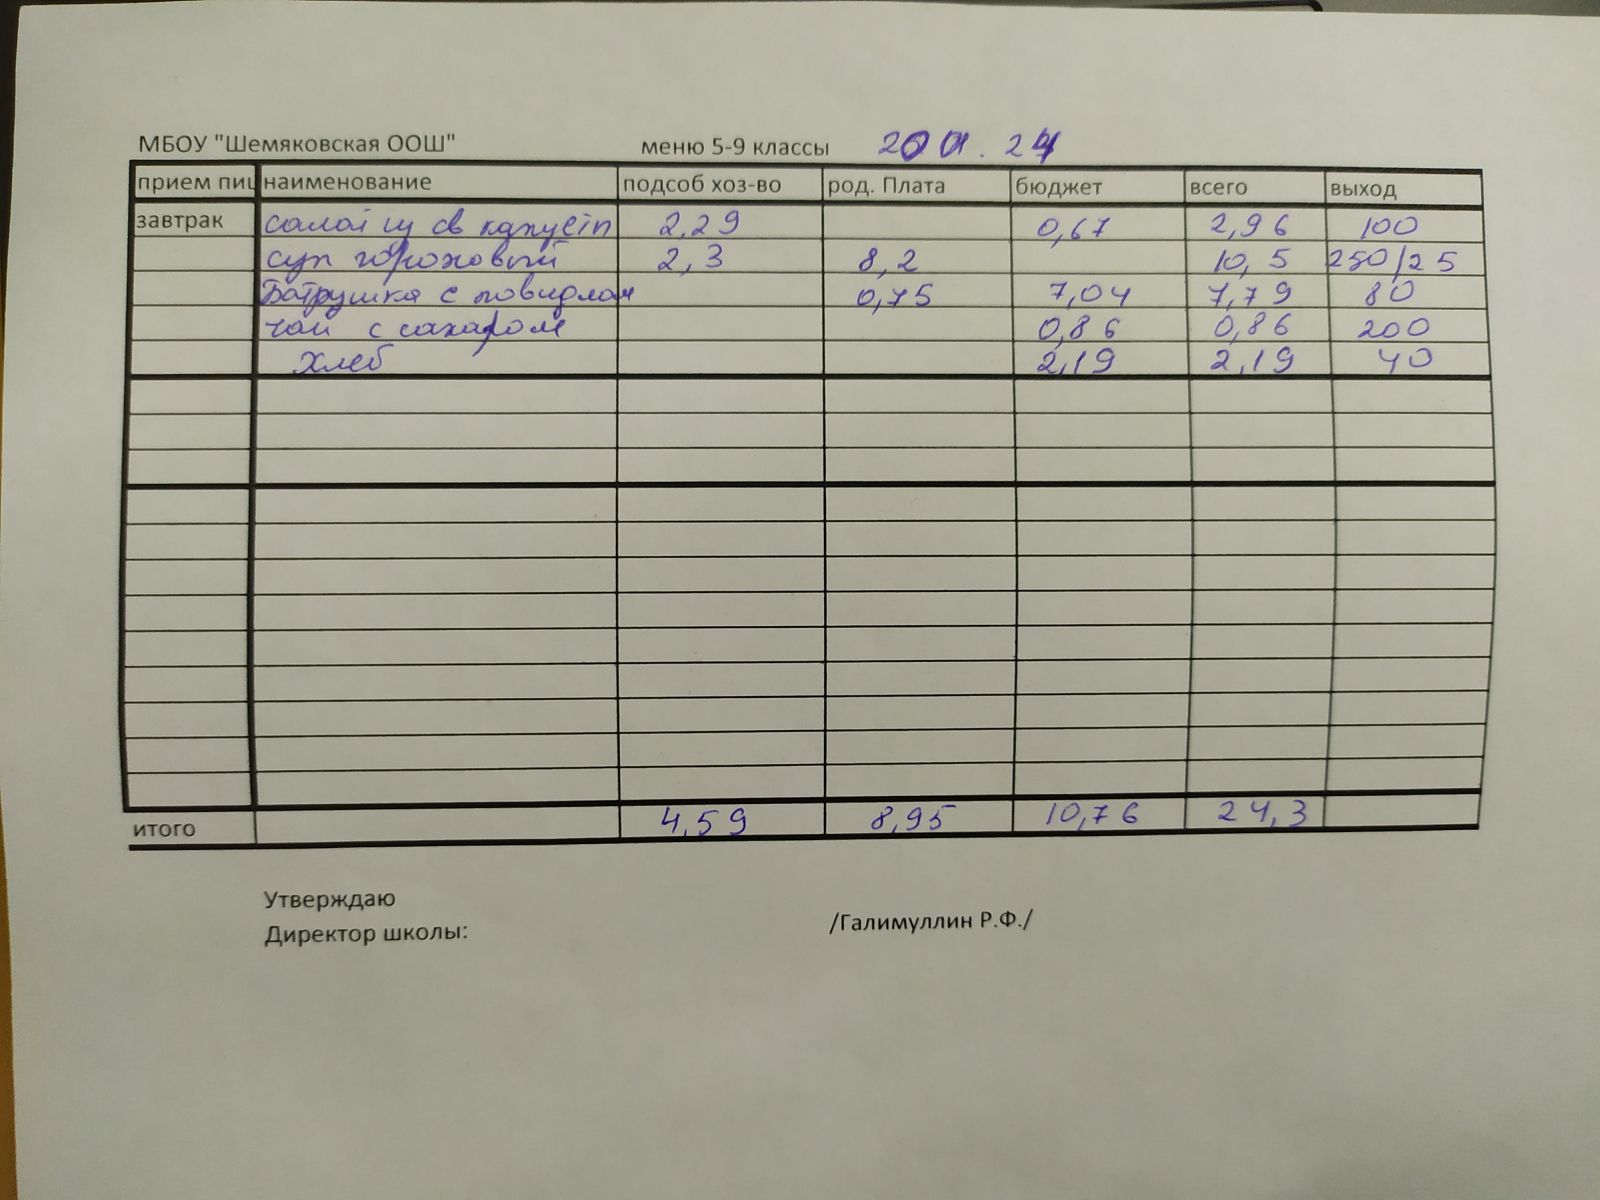 МБОУ "Шемяковская ООШ" меню 5-9 классы 20 01. 24
прием пиц наименование подсоб хоз-во род. Плата бюджет всего выход
завтрак салат из св капусты 2,29 0,67 2,96 100
суп гороховый 2,3 8,2 10,5 250/25
Ватрушка с повидлом 0,75 7,04 7,79 80
чай с сахаром 0,86 0,86 200
хлеб 2,19 2,19 40
итого 4,59 8,95 10,76 24,3
Утверждаю
Директор школы: /Галимуллин Р.Ф./